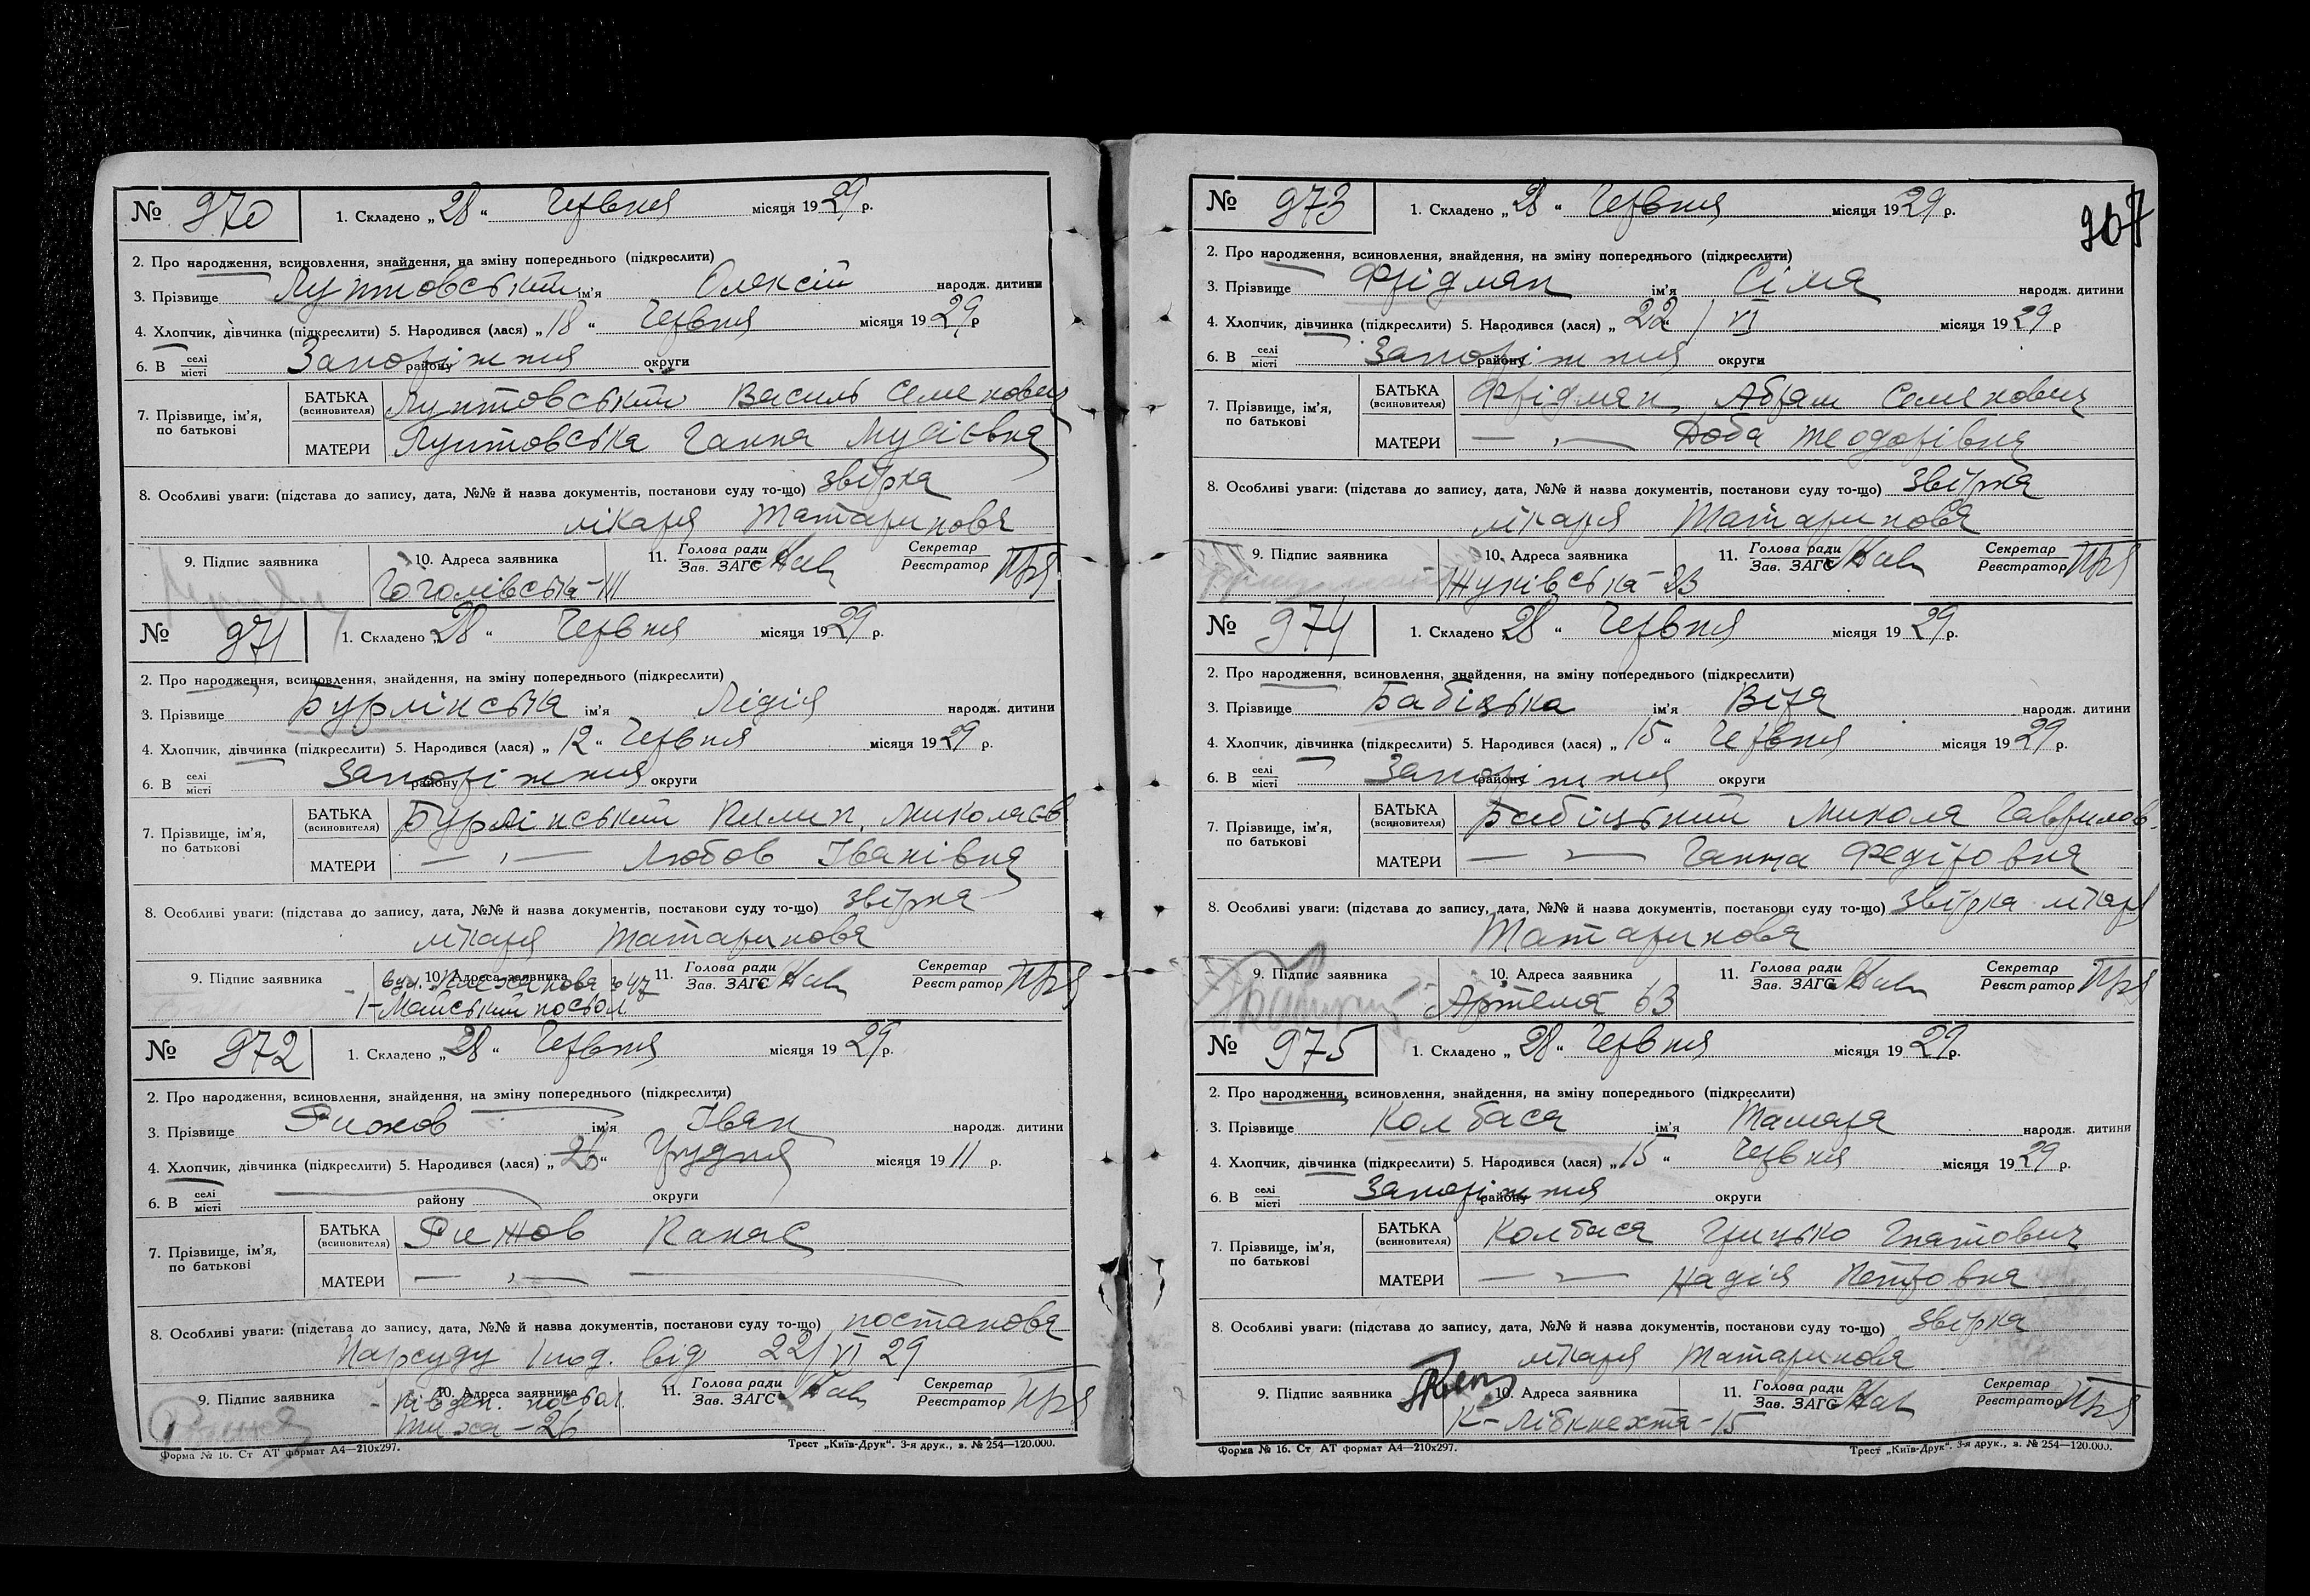 № 970 1. Складено „28“ Червня місяця 1929 р.
2. Про народження, всиновлення, знайдення, на зміну попереднього (підкреслити)
3. Прізвище Луптовський ім'я Олексій народж. дитини
4. Хлопчик, дівчинка (підкреслити) 5. Народився (лася) „18“ Червня місяця 1929 р
6. В селі місті Запоріжжя району округи
7. Прізвище, ім'я, по батькові БАТЬКА (всиновителя) Луптовський Василь Семенович
МАТЕРИ Луптовська Ганна Мусієвна
8. Особливі уваги: (підстава до запису, дата, №№ й назва документів, постанови суду то-що) звірка
лікаря Татаринова
9. Підпис заявника 10. Адреса заявника 11. Голова ради Зав. ЗАГС Секретар Реєстратор
Гоголівська-111
№ 971 1. Складено „28“ Червня місяця 1929 р.
2. Про народження, всиновлення, знайдення, на зміну попереднього (підкреслити)
3. Прізвище Бурлінська ім'я Лідія народж. дитини
4. Хлопчик, дівчинка (підкреслити) 5. Народився (лася) „12“ Червня місяця 1929 р.
6. В селі місті Запоріжжя району округи
7. Прізвище, ім'я, по батькові БАТЬКА (всиновителя) Бурлінський Пилип Миколаєв
МАТЕРИ — „ — Любов Іванівна
8. Особливі уваги: (підстава до запису, дата, №№ й назва документів, постанови суду то-що) звірка
лікаря Татаринова
9. Підпис заявника 10. Адреса заявника 11. Голова ради Зав. ЗАГС Секретар Реєстратор
вул. Плеханова 47
1-Майський посьол
№ 972 1. Складено „28“ Червня місяця 1929 р.
2. Про народження, всиновлення, знайдення, на зміну попереднього (підкреслити)
3. Прізвище Рижов ім'я Іван народж. дитини
4. Хлопчик, дівчинка (підкреслити) 5. Народився (лася) „26“ Грудня місяця 1911 р.
6. В селі місті району округи
7. Прізвище, ім'я, по батькові БАТЬКА (всиновителя) Рижов Панас
МАТЕРИ — „ —
8. Особливі уваги: (підстава до запису, дата, №№ й назва документів, постанови суду то-що) постанова
Нарсуду від 22/VI 29
9. Підпис заявника 10. Адреса заявника 11. Голова ради Зав. ЗАГС Секретар Реєстратор
Півден. посьол.
Тиха-26
Форма № 16. Ст АТ формат А4—210х297. Трест „Київ-Друк“. 3-я друк., з. № 254—120.000.
907
№ 973 1. Складено „28“ Червня місяця 1929 р.
2. Про народження, всиновлення, знайдення, на зміну попереднього (підкреслити)
3. Прізвище Фрідман ім'я Сіма народж. дитини
4. Хлопчик, дівчинка (підкреслити) 5. Народився (лася) „22“ / VI місяця 1929 р
6. В селі місті Запоріжжя району округи
7. Прізвище, ім'я, по батькові БАТЬКА (всиновителя) Фрідман Абрам Семенович
МАТЕРИ — „ — Доба Теодорівна
8. Особливі уваги: (підстава до запису, дата, №№ й назва документів, постанови суду то-що) Звірка
лікаря Татаринова
9. Підпис заявника 10. Адреса заявника 11. Голова ради Зав. ЗАГС Секретар Реєстратор
Жуківська-23
№ 974 1. Складено „28“ Червня місяця 1929 р.
2. Про народження, всиновлення, знайдення, на зміну попереднього (підкреслити)
3. Прізвище Бабіцька ім'я Віра народж. дитини
4. Хлопчик, дівчинка (підкреслити) 5. Народився (лася) „15“ Червня місяця 1929 р.
6. В селі місті Запоріжжя району округи
7. Прізвище, ім'я, по батькові БАТЬКА (всиновителя) Бабіцький Микола Гаврилов.
МАТЕРИ — „ — Ганна Федіровна
8. Особливі уваги: (підстава до запису, дата, №№ й назва документів, постанови суду то-що) Звірка лікаря
Татаринова
9. Підпис заявника 10. Адреса заявника 11. Голова ради Зав. ЗАГС Секретар Реєстратор
Артема 63
№ 975 1. Складено „28“ Червня місяця 1929 р.
2. Про народження, всиновлення, знайдення, на зміну попереднього (підкреслити)
3. Прізвище Колбаса ім'я Тамара народж. дитини
4. Хлопчик, дівчинка (підкреслити) 5. Народився (лася) „15“ Червня місяця 1929 р.
6. В селі місті Запоріжжя району округи
7. Прізвище, ім'я, по батькові БАТЬКА (всиновителя) Колбаса Грицько Гнатович
МАТЕРИ — „ — Надія Петровна
8. Особливі уваги: (підстава до запису, дата, №№ й назва документів, постанови суду то-що) Звірка
лікаря Татаринова
9. Підпис заявника 10. Адреса заявника 11. Голова ради Зав. ЗАГС Секретар Реєстратор
К-Лібкнехта-15
Форма № 16. Ст АТ формат А4—210х297. Трест „Київ-Друк“. 3-я друк., з. № 254—120.000.